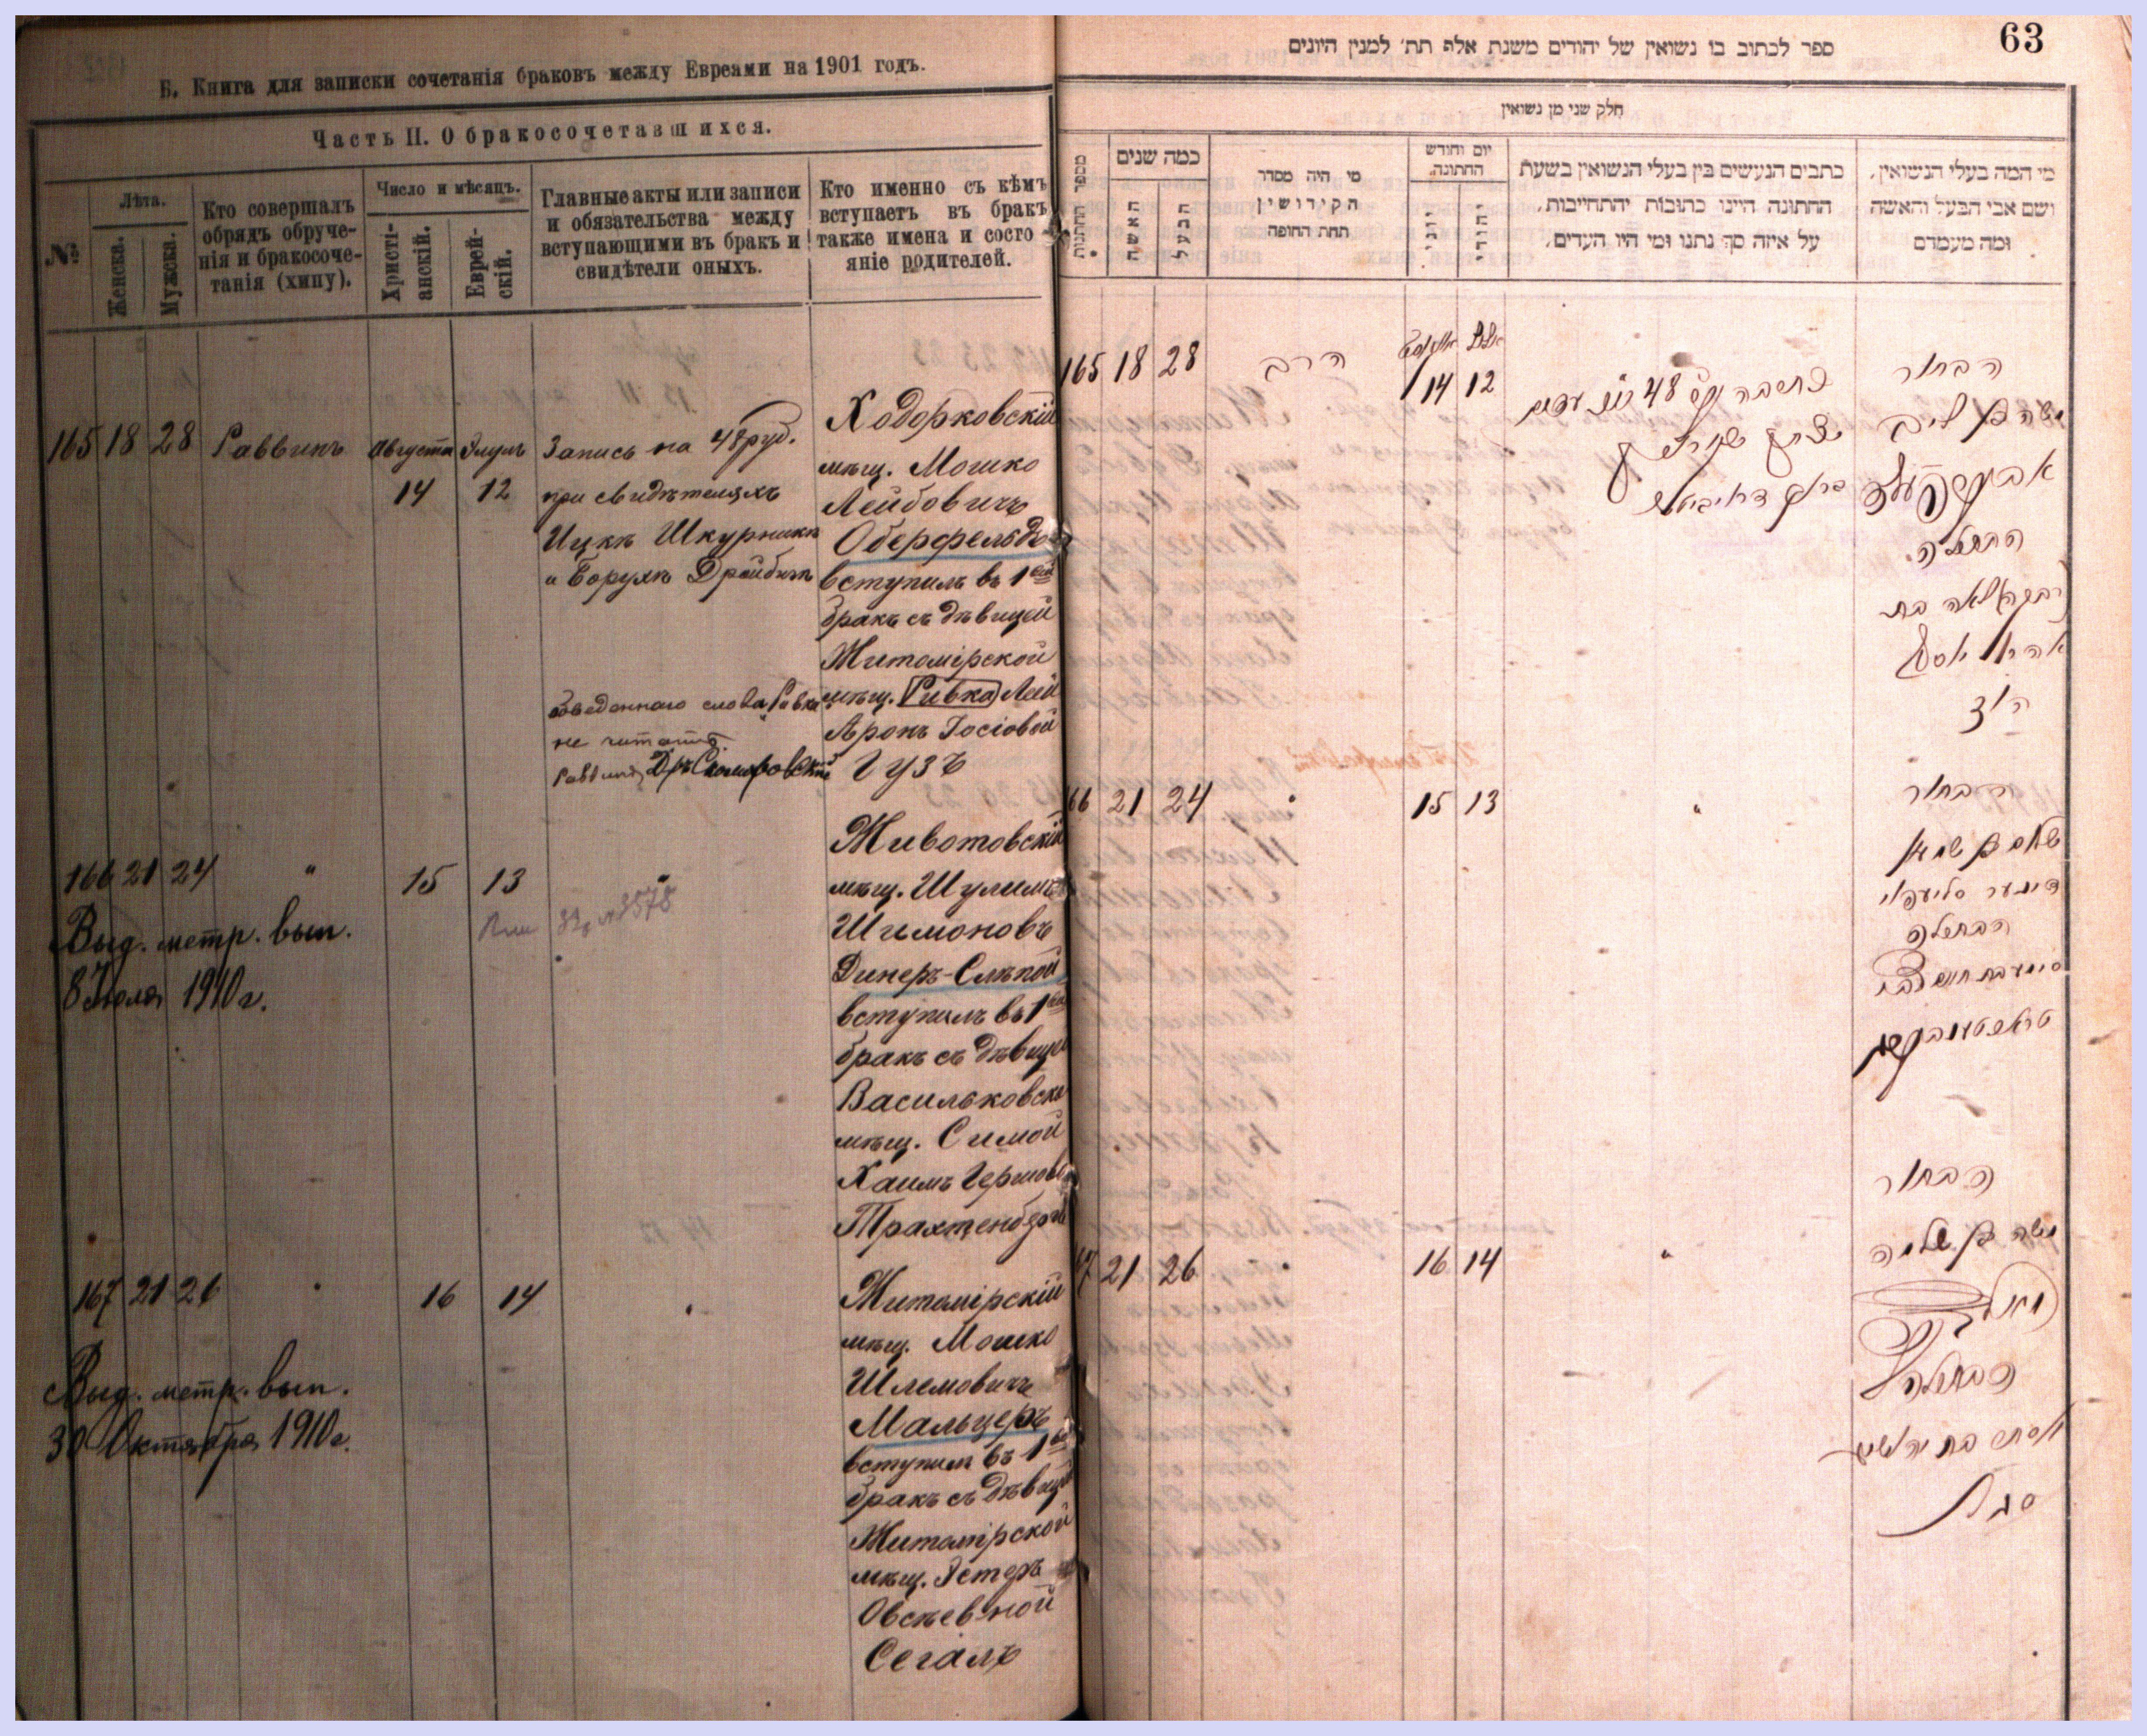 Б. Книга для записки сочетанія браковъ между Евреями на 1901 годъ.
Часть II. О бракосочетавшихся.
№
Лѣта.
Женска.
Мужска.
Кто совершалъ
обрядъ обруче-
нія и бракосоче-
танія (хипу).
Число и мѣсяцъ.
Христі-
анскій.
Еврей-
скій.
Главные акты или записи
и обязательства между
вступающими въ бракъ и
свидѣтели оныхъ.
Кто именно съ кѣмъ
вступаетъ въ бракъ
также имена и состо
яніе родителей.
165 18 28 Раввинъ Августа 14 Элулъ 12
Запись на 48 руб.
при свидѣтеляхъ
Ицкѣ Шкурникѣ
и Борухѣ Дройбичѣ
Ходорковскій
мѣщ. Мошко
Лейбовичъ
Оберфельдъ
вступилъ въ 1ый
бракъ съ дѣвицей
Житомірской
мѣщ. Ривка Лея
Аронъ Іосіовой
Гузъ
обведеннаго слова „Ривка
не читать.
Раввинъ Др.
166 21 24 " 15 13 "
Выд. метр. вып.
8 Іюля 1910 г.
№ 3578
Животовскій
мѣщ. Шулимъ
Шимоновъ
Динеръ-Слѣпой
вступилъ въ 1ый
бракъ съ дѣвицей
Васильковской
мѣщ. Симой
Хаимъ Гершовой
Трахтенбергъ
167 21 26 " 16 14 "
Выд. метр. вып.
30 Октября 1910 г.
Житомірскій
мѣщ. Мошко
Шлемовичъ
Мальцеръ
вступилъ въ 1ый
бракъ съ дѣвицей
Житомірской
мѣщ. Эстеръ
Овсѣевной
Сегалъ
63
ספר לכתוב בו נשואין של יהודים משנת אלף תת׳ למנין היונים
חלק שני מן נשואין
מספר החתונות
כמה שנים
האשה
הבעל
מי היה מסדר
הקידושין
תחת החופה
יום וחודש
החתונה.
יוני
יהודי
כתבים הנעשים בין בעלי הנשואין בשעת
החתונה היינו כתובות יהתחייבות,
על איזה סך נתנו ומי היו העדים.
מי המה בעלי הנשואין,
ושם אבי הבעל והאשה
ומה מעמדם
165 18 28 הרב אויגוסט 14 אלול 12
48
הבחור
משה בן ליב
הבתולה
רבקה לאה בת
אהרן יאסעל
הוז
66 21 24 " 15 13 "
הבחור
שלום בן שמעון
הבתולה
טראכטענבערג
67 21 26 " 16 14 "
הבחור
משה בן שלמה
הבתולה
אסתר בת יהושע
סגל